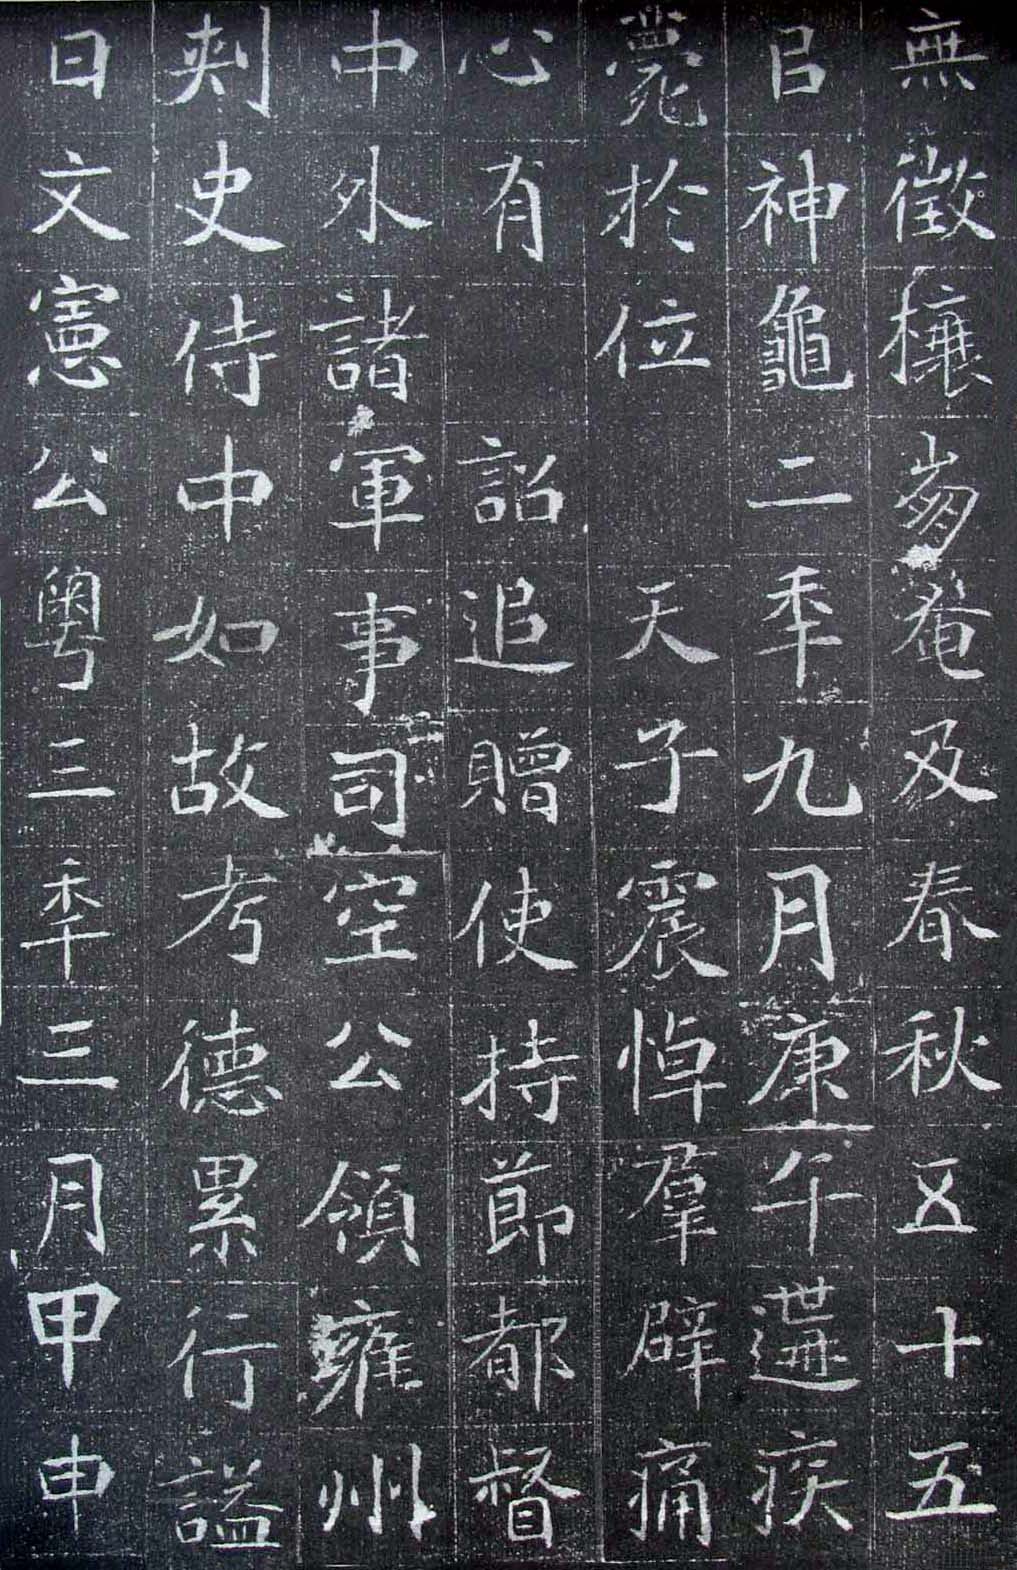 無徵櫰芻奄及春秋五十五
㠯神龜二秊九月庚午遘疾
薨於位天子震悼羣辟痛
心有詔追贈使持節都督
中外諸軍事司空公領雍州
刾史侍中如故考德累行謚
曰文憲公粵三秊三月甲申